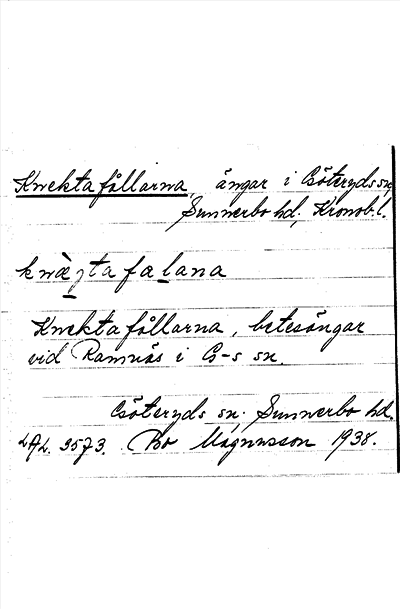 Knektafållarna, ängar i Göteryds sn,
Sunnerbo hd, Kronob. l.
knæ̀ktafalana
Knektafållarna, betesängar
vid Ramnäs i G-s sn.
Göteryds sn. Sunnerbo hd.
LAL. 3573. Bo Magnusson 1938.